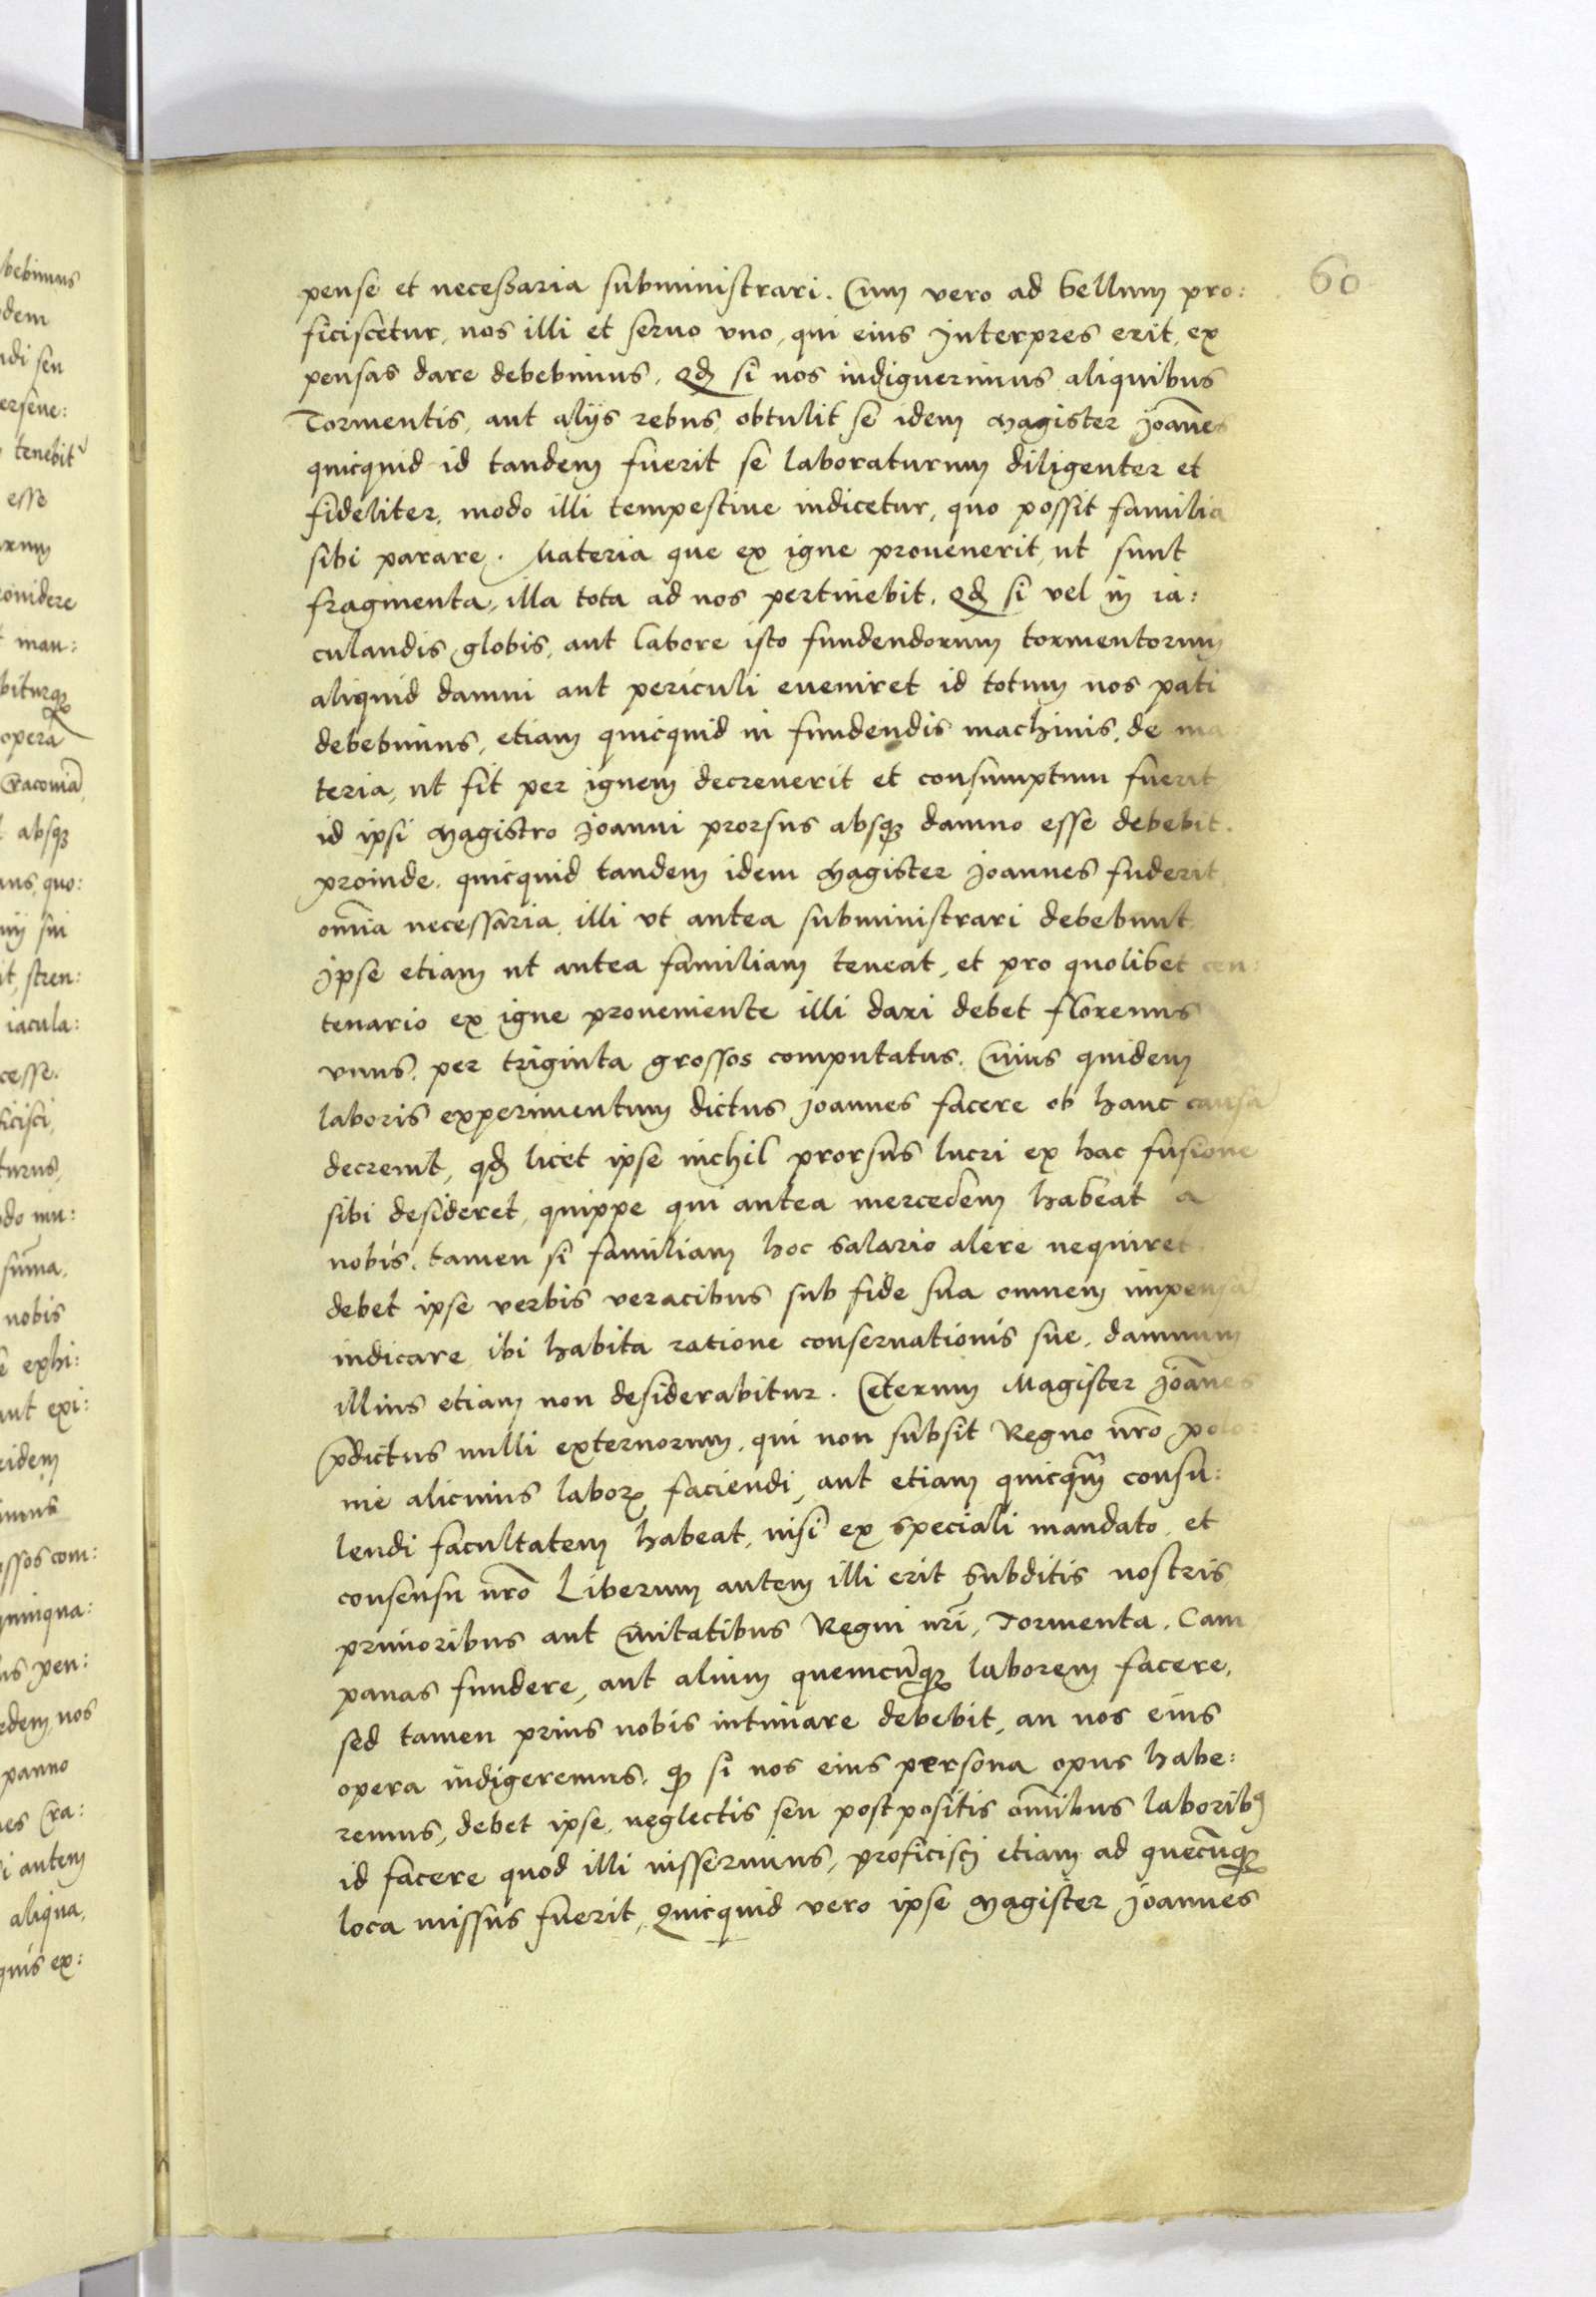 60
pense et necessaria subministrari. Cum vero ad bellum pro:
ficiscetur, nos illi et seruo vno, qui eius Interpres erit, ex
pensas dare debebimus, qđ si nos indiguerimus aliquibus
Tormentis, aut alijs rebus, obtulit se idem Magister Joañes
quicquid id tandem fuerit se laboraturum diligenter et
fideliter, modo illi tempestiue indicetur, quo possit familia
sibi parare. Materia que ex igne prouenerit, ut sunt
fragmenta, illa tota ad nos pertinebit. qđ si vel in ia:
culandis globis, aut labore isto fundendorum tormentorum
aliquid damni aut periculi eueniret id totum nos pati
debebimus, etiam quicquid in fundendis machinis, de ma
teria, ut fit per ignem decreuerit et consumptum fuerit
id ipsi Magistro Joanni prorsus absq₃ damno esse debebit.
proinde, quicquid tandem idem Magister Joannes fuderit,
om̃ia necessaria, illi vt antea subministrari debebunt
Ipse etiam ut antea familiam teneat, et pro quolibet cen:
tenario ex igne proueniente illi dari debet florenus
vnus, per triginta grossos computatus. Cuius quidem
laboris experimentum dictus Joannes facere ob hanc causã
decreuit, qđ licet ipse nichil prorsus lucri ex hac fusione
sibi desideret, quippe qui antea mercedem habeat a
nobis, tamen si familiam hoc salario alere nequiret
debet ipse verbis veracibus sub fide sua omnem impensã
indicare ibi habita ratione conseruationis sue, damnum
illius etiam non desiderabitur. Ceterum Magister Joañes
p̃dictus nulli externorum, qui non subsit Regno nr̃o polo:
nie alicuius laborꝫ faciendi, aut etiam quicq̃m consu:
lendi facultatem habeat, nisi ex speciali mandato et
consensu nr̃o Liberum autem illi erit subditis nostris
primoribus aut Ciuitatibus Regni nr̃i, Tormenta, Cam
panas fundere, aut alium quemcũq₃ laborem facere,
sed tamen prius nobis intimare debebit, an nos eius
opera indigeremus, qđ si nos eius persona opus habe:
remus, debet ipse, neglectis seu postpositis om̃ibus laborib₉
id facere quod illi iusserimus, proficisci etiam ad quecũq₃
loca missus fuerit, Quicquid vero ipse Magister Joannes